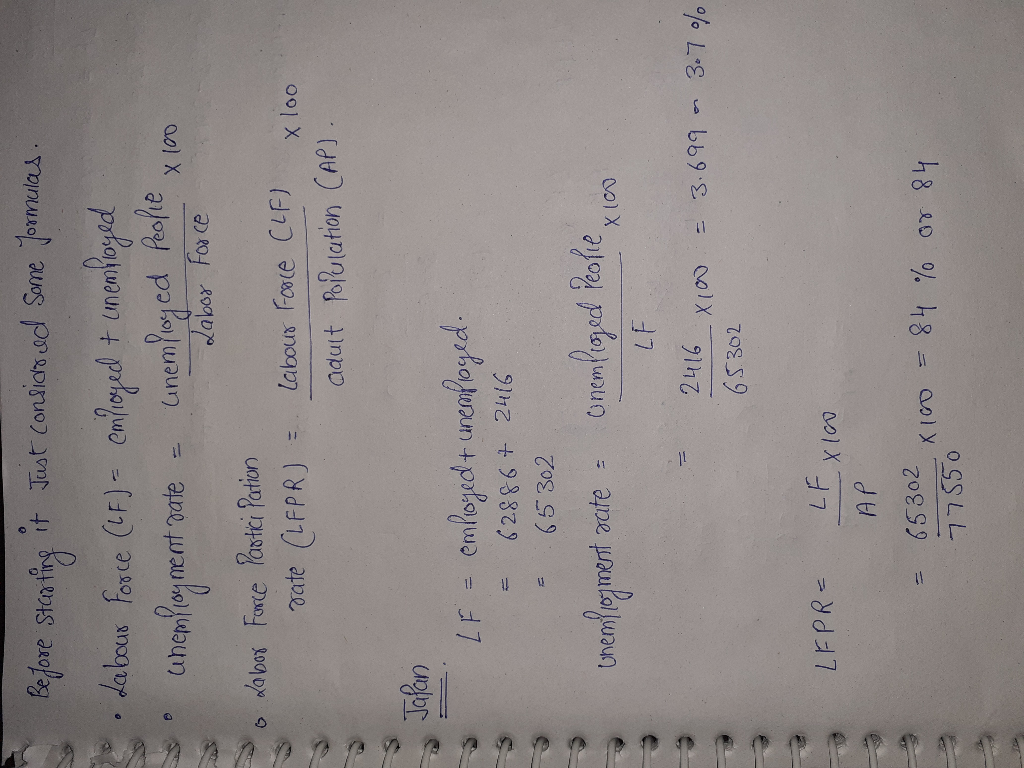 Before starting it Just considered Some formulas.
• Labour Force (LF) = employed + unemployed
• unemployment rate = unemployed People / Labor Force x 100
• Labor Force Participation
rate (LFPR) = Labour Force (LF) / adult Population (AP). x 100
Japan
LF = employed + unemployed.
= 62886 + 2416
= 65302
unemployment rate = Unemployed People / LF x 100
= 2416 / 65302 x 100 = 3.699 ~ 3.7 %
LFPR = LF / AP x 100
= 65302 / 77550 x 100 = 84 % or 84